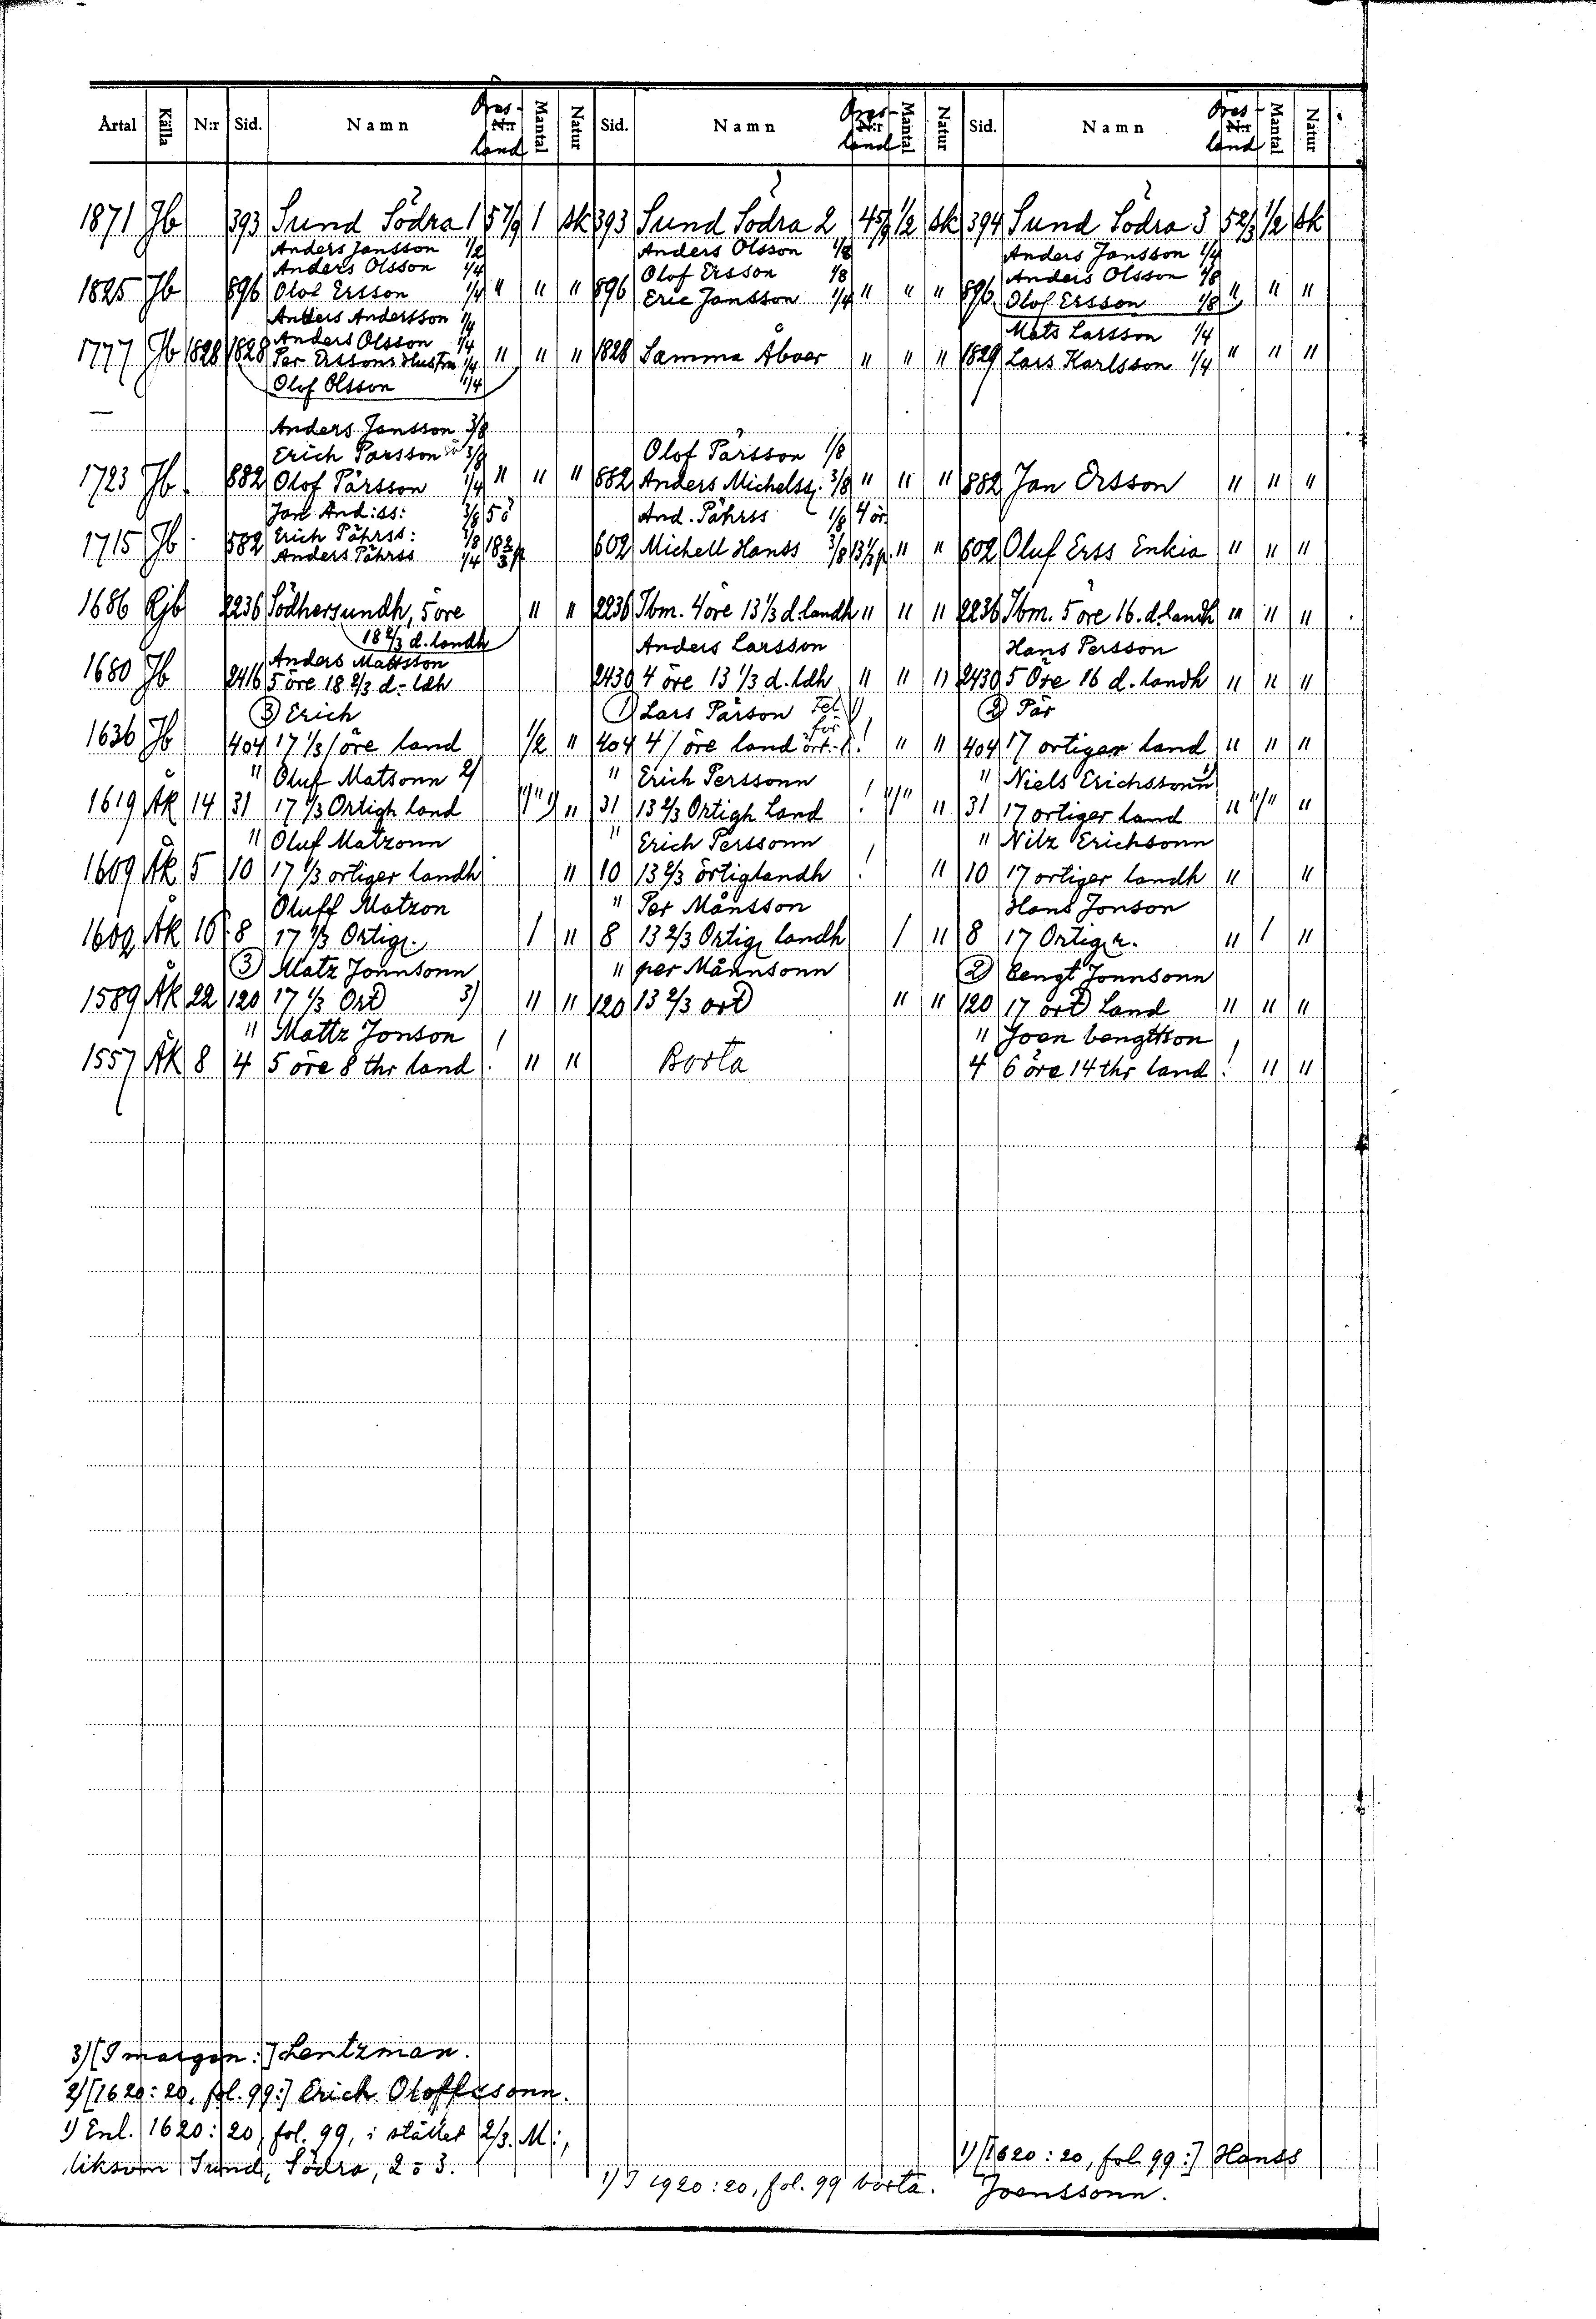 Årtal Källa N:r Sid. Namn Öres- N:r land Mantal Natur Sid. Namn Öres- N:r land Mantal Natur Sid. Namn Öres- N:r land Mantal Natur
1871 Jb 393 Sund Södra 1 5 7/9 1 sk 393 Sund Södra 2 4 5/9 1/2 sk 394 Sund Södra 3 5 2/3 1/2 sk
Anders Jansson 1/2 Anders Olsson 1/8 Anders Jansson 1/4
Anders Olsson 1/4 Olof Ersson 1/8 Anders Olsson 1/8
1825 Jb 896 Olof Ersson 1/4 " " " 896 Eric Jansson 1/4 " " " 896 Olof Ersson 1/8 " " "
Anders Andersson 1/4
Anders Olsson 1/4 Mats Larsson 1/4
1777 Jb 1828 1828 Per Erssons Hustru 1/4 " " " 1828 Samma Åboer " " " 1829 Lars Karlsson 1/4 " " "
Olof Olsson 1/4
Anders Jansson 3/8
Erich Pärsson 3/8 Olof Pärsson 1/8
1723 Jb 882 Olof Pärsson 1/4 " " " 882 Anders Michelss. 3/8 " " " 882 Jan Ersson " " "
Jan And:ss: 3/8 5ö And. Pährss 1/8 4 ör
1715 Jb 582 Erich Pährss: 3/8 18 2/3 p 602 Michell Hanss 3/8 13 1/3 p. " " 602 Oluf Erss Enkia " " "
Anders Pährss 1/4
1686 Rjb 2236 Södhersundh, 5 öre " " 2236 Ibm. 4 öre 13 1/3 d. landh " " " 2236 Ibm. 5 öre 16. d. landh " " "
18 2/3 d. landh
Anders Mattsson Anders Larsson Hans Persson
1680 Jb 2416 5 öre 18 2/3 d:- ldh 2430 4 öre 13 1/3 d. ldh " " " 2430 5 Öre 16 d. landh " " "
3) Erich 1) Lars Pärson Fel för 2) Pär
1636 Jb 404 17 1/3 / öre land 1/2 " 404 4 / öre land ört. ! " " 404 17 ortiger land " " "
" Oluf Matsonn 2) " Erich Perssonn " Niels Erichssonn 1)
1619 Äk 14 31 17 1/3 Ortigh land " 31 13 2/3 Ortigh Land ! " " 31 17 ortiger land " " "
" Oluf Matzonn " Erich Perssonn " Nilz Erichsonn
1609 Äk 5 10 17 1/3 ortiger landh " 10 13 2/3 örtiglandh ! " 10 17 ortiger landh " "
Oluff Matzon " Per Månsson Hans Jonson
1602 Äk 16 8 17 1/3 Ortig. 1 " 8 13 2/3 Ortig landh 1 " 8 17 Ortigr. " 1 "
3) Matz Jonnsonn " per Månnsonn 2) bengt Jonnsonn
1589 Äk 22 120 17 1/3 Ort 3) " " 120 13 2/3 ort " " 120 17 ort Land " " "
" Mattz Jonson " Joen bengttson
1557 Äk 8 4 5 öre 8 thr land ! " " Borta 4 6 öre 14 thr land ! " "
3) [I margen:] Lentzman.
2) [1620:20, fol. 99:] Erich Oloffssonn.
1) Enl. 1620:20, fol. 99, i stället 2/3 M:,
liksom Sund, Södra, 2 o 3.
1) I 1920:20, fol. 99 borta.
1) [1620:20, fol. 99:] Hanss
Joenssonn.